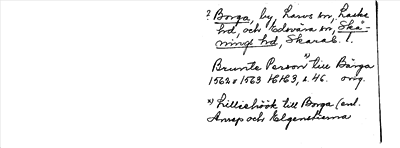 ? Borga, by, Larvs sn, Laske
hd, och Edsvära sn, Skå-
nings hd, Skarab. l.
Brunte Person x) till Bårga
1562 o 1563 HH63, s. 46. orig.
x) Lilliehöök till Borga (enl.
Anrep och Elgenstierna